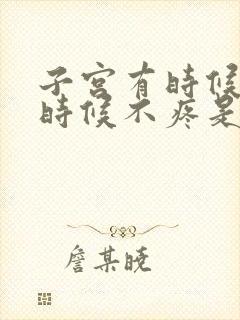 子宫有時候
時候不疼是
詹某晓